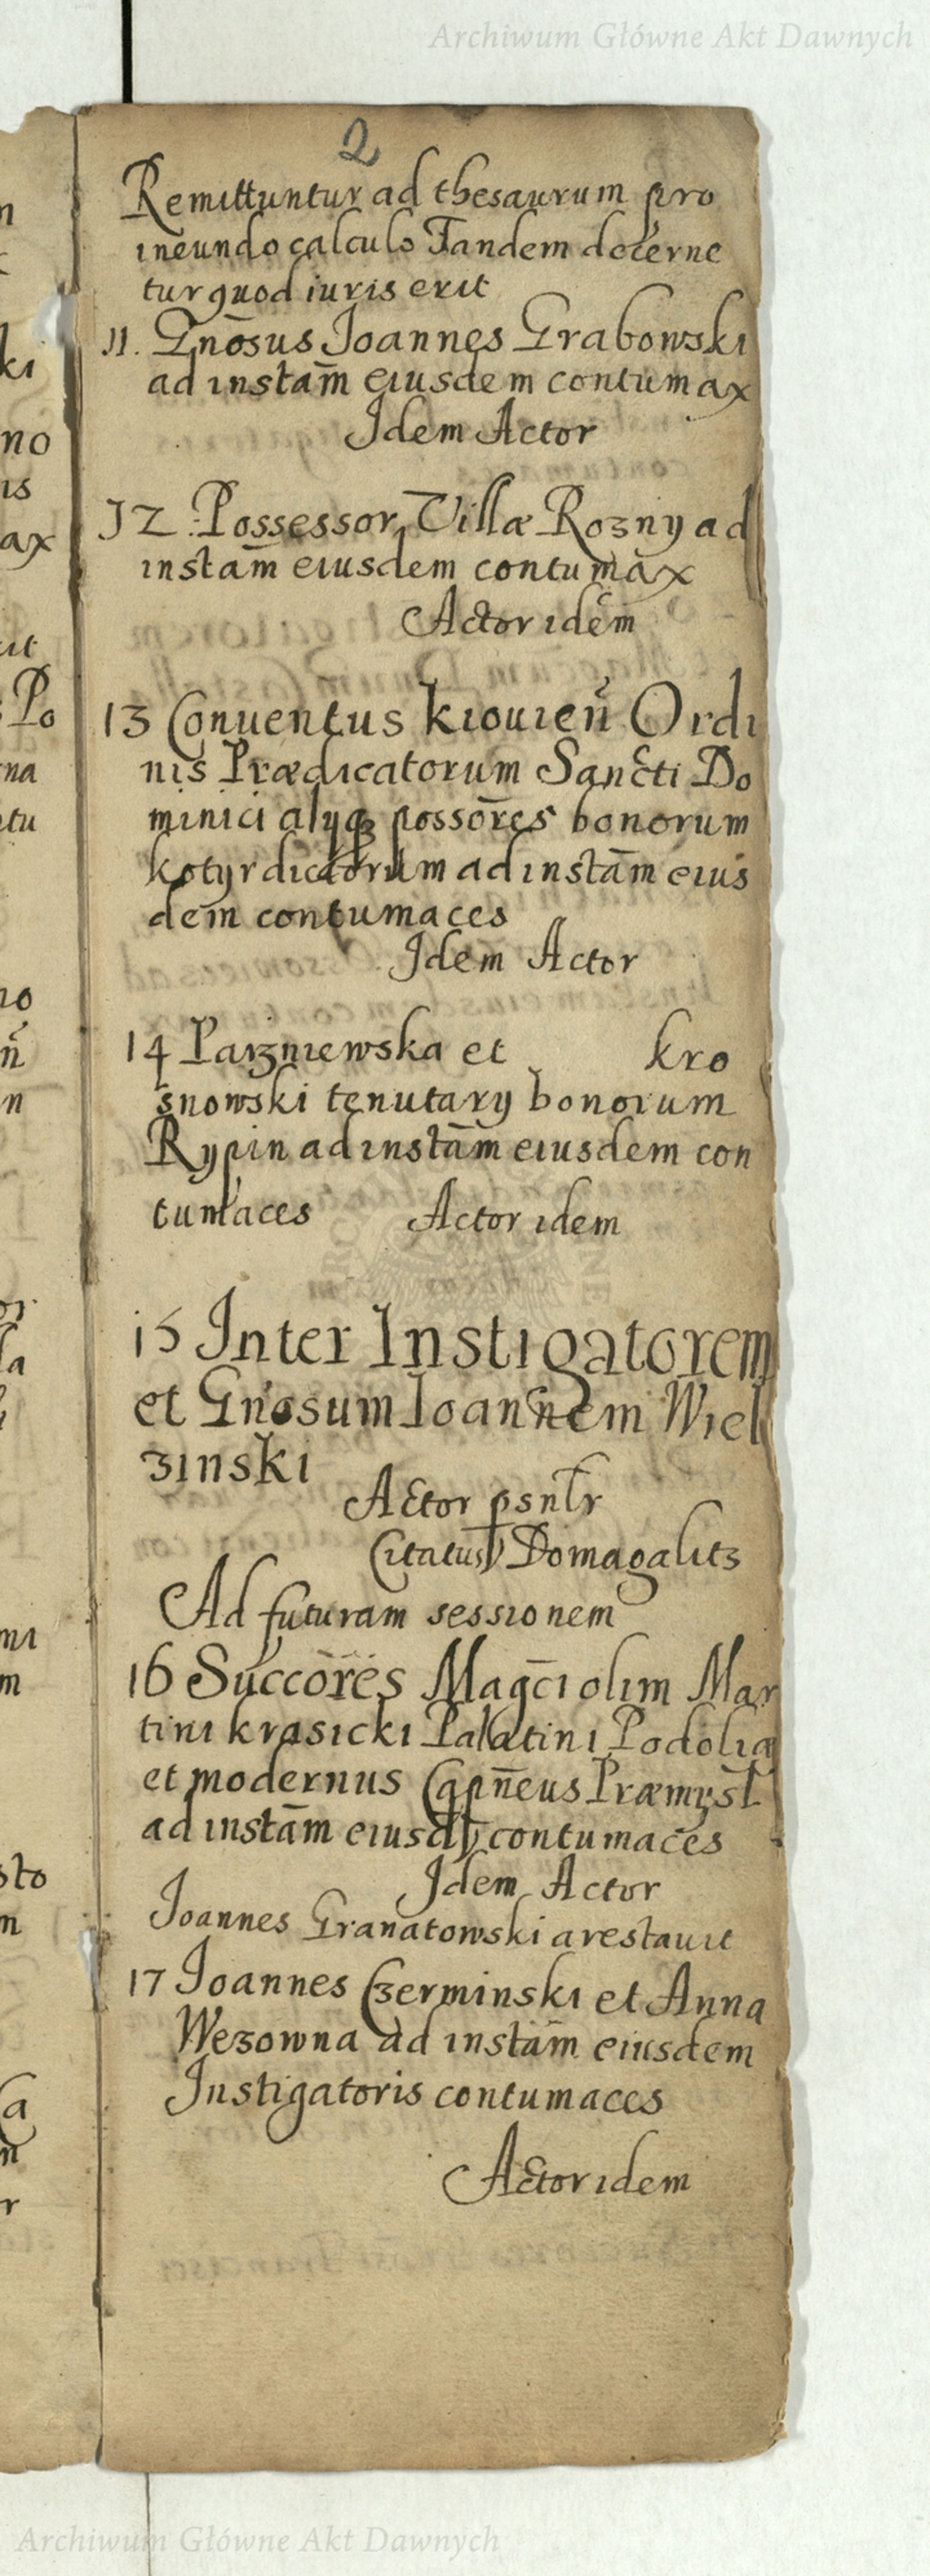 Archiwum Główne Akt Dawnych
2
Remittuntur ad thesaurum pro
ineundo calculo Tandem decerne
tur quod iuris erit
11. Gnōsus Joannes Grabowski
ad instām eiusdem contumax
Idem Actor
12. Possessor Villæ Rozny ad
instām eiusdem contumax
Actor idem
13 Conuentus kiouien̄ Ordi
nis Prædicatorum Sancti Do
minici alyqꝫ possōres bonorum
kotyr dictorum ad instām eius
dem contumaces
Idem Actor
14 Parzniewska et kro
snowski tenutary bonorum
Rypin ad instām eiusdem con
tumaces Actor idem
15 Inter Instigatorem
et Gnosum Joannem Wiel
zinski
Actor psnlr
Citatus Domagalitz
Ad futuram sessionem
16 Succōres Magc̄i olim Mar
tini krasicki Palatini Podoliæ
et modernus Capn̄eus Præmysl
ad instām eiusd contumaces
Idem Actor
Joannes Granatowski arestauit
17 Joannes Czerminski et Anna
Wezowna ad instām eiusdem
Instigatoris contumaces
Actor idem
Archiwum Główne Akt Dawnych